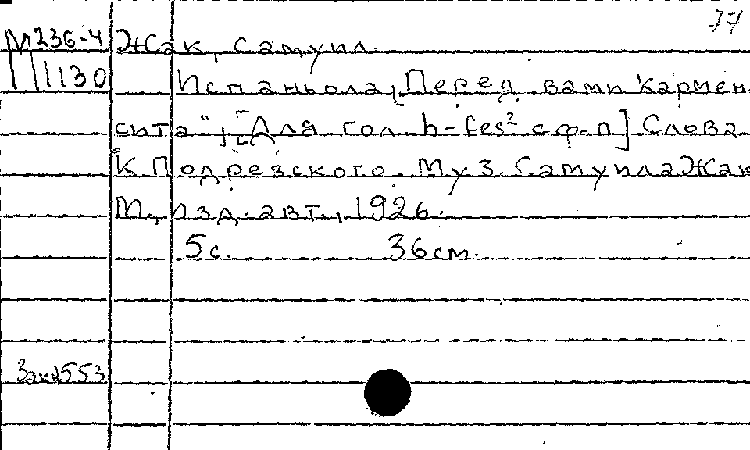 77
М236-4 Жак, Самуил.
1130 Испаньола, „Перед вами Кармен-
сита“, [Для гол. h-fes² с ф-п] Слова
К. Подрезского. Муз. Самуила Жак
М., изд. авт., 1926.
5с. 36 см.
553